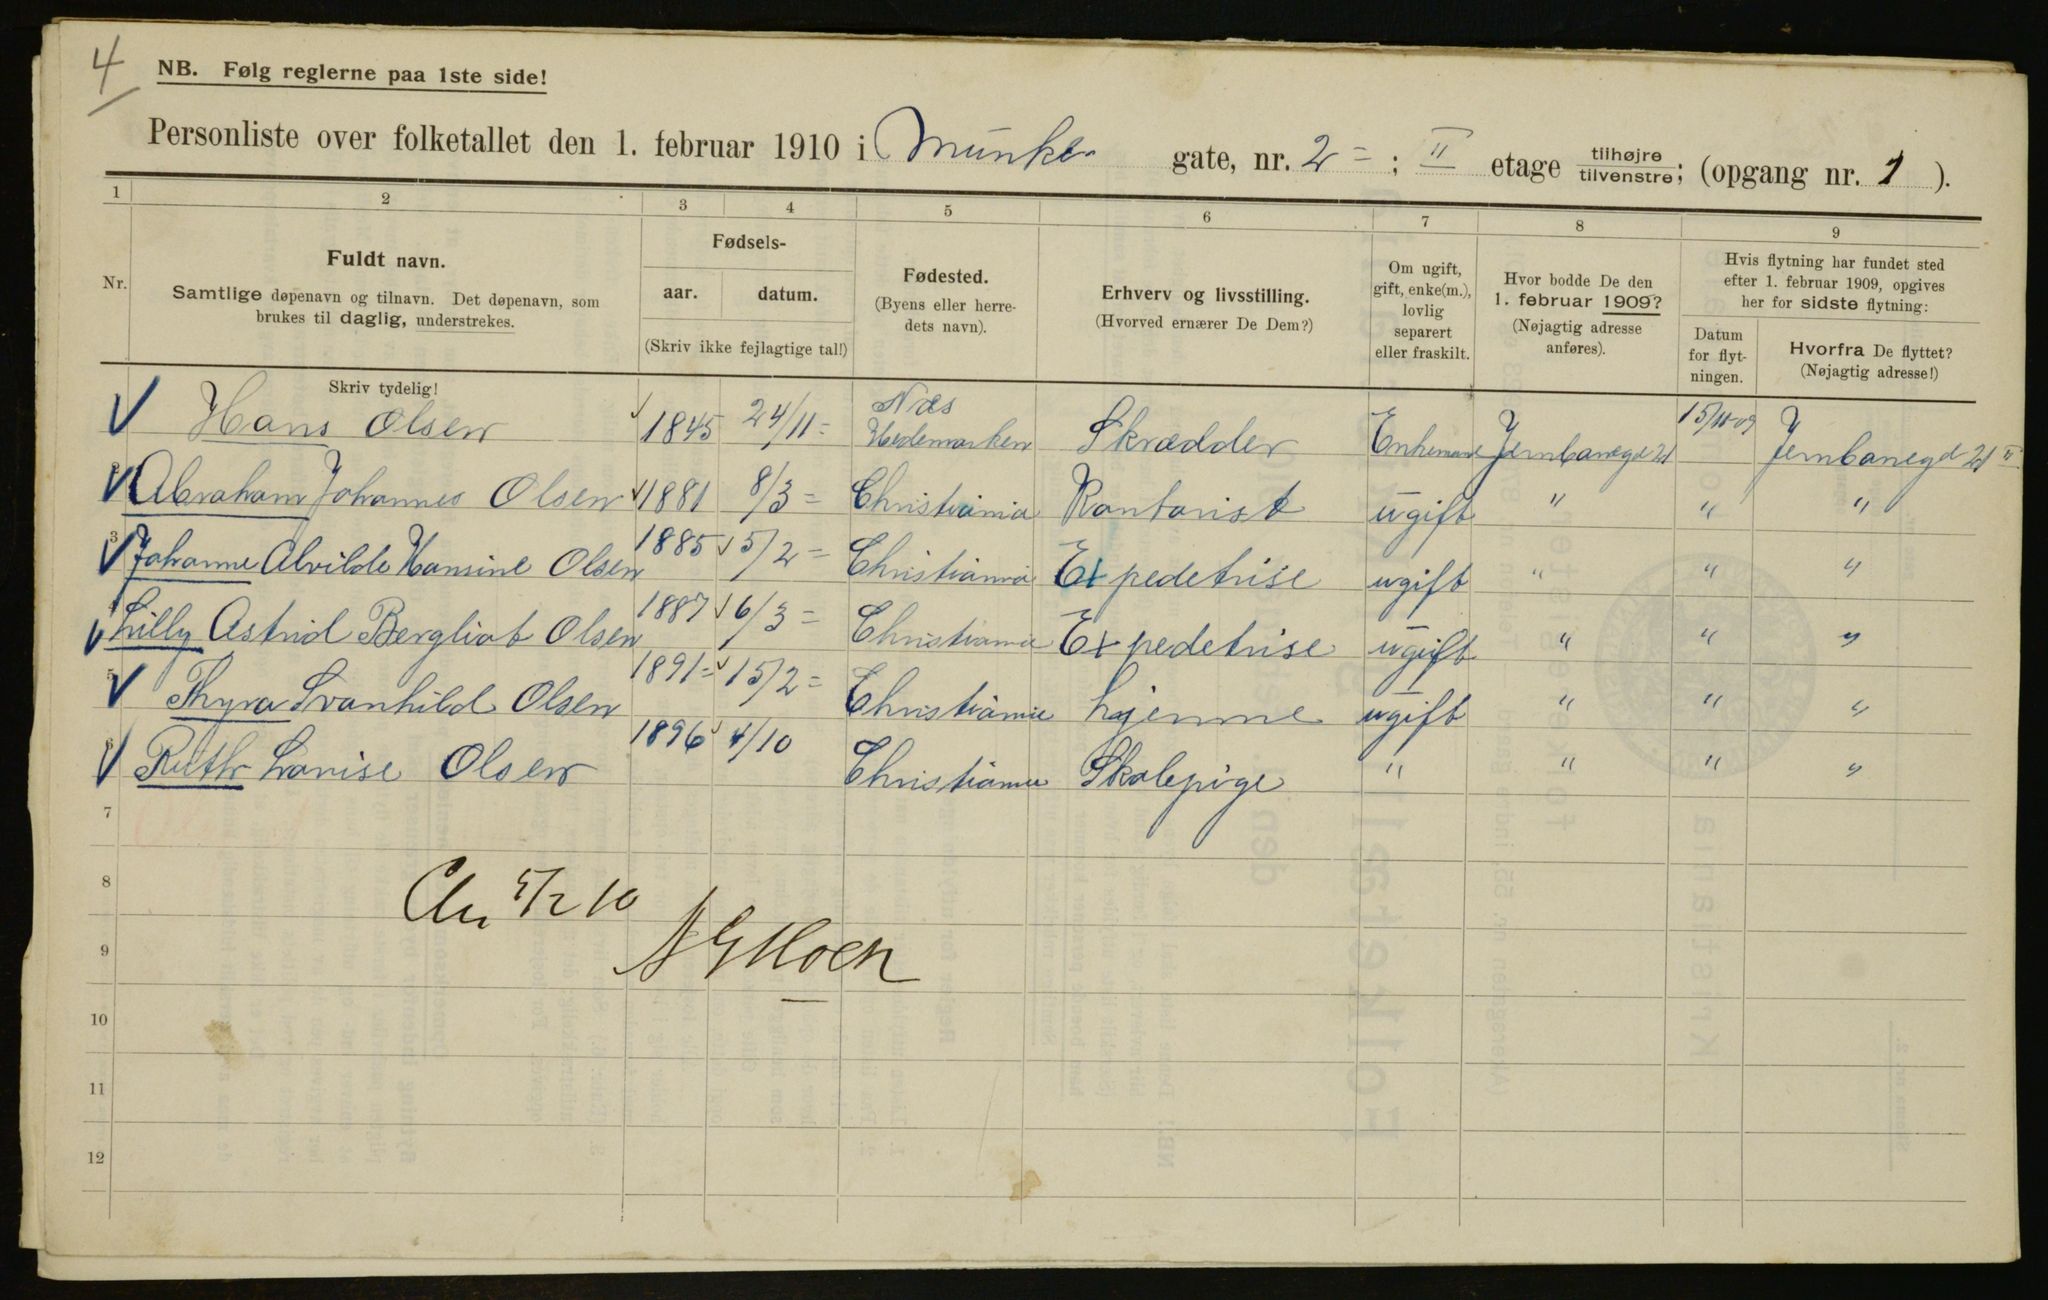 4
NB. Følg reglerne paa 1ste side!
Personliste over folketallet den 1. februar 1910 i Munke gate, nr. 2 = ; II etage tilhøjre tilvenstre; (opgang nr. 1 ).
1 2 3 4 5 6 7 8 9
Nr.
Fuldt navn.
Samtlige døpenavn og tilnavn. Det døpenavn, som
brukes til daglig, understrekes.
Skriv tydelig!
Fødsels-
aar. datum.
(Skriv ikke fejlagtige tal!)
Fødested.
(Byens eller herre-
dets navn).
Erhverv og livsstilling.
(Hvorved ernærer De Dem?)
Om ugift,
gift, enke(m.),
lovlig
separert
eller fraskilt.
Hvor bodde De den
1. februar 1909?
(Nøjagtig adresse
anføres).
Hvis flytning har fundet sted
efter 1. februar 1909, opgives
her for sidste flytning:
Datum
for flyt-
ningen.
Hvorfra De flyttet?
(Nøjagtig adresse!)
Hans Olsen 1845 24/11 = Næs Hedemarken Skrædder Enkemand Jernbanegd 21 15/11-09 Jernbanegd 21 II
Abraham Johannes Olsen 1881 8/3 = Christiania Kontorist ugift " " "
3 Johanne Alvilde Hansine Olsen 1885 5/2 = Christiania Expedetrise ugift " " "
Lilly Astrid Bergliot Olsen 1887 6/3 = Christiania Expedetrise ugift " " "
5 Thyra Svanhild Olsen 1891 = 15/2 = Christiania hjemme ugift " " "
6 Ruth Lovise Olsen 1896 4/10 Christiania Skolepige " " " "
7
8
Chr 5/2 10
9
N G Moen
10
11
12